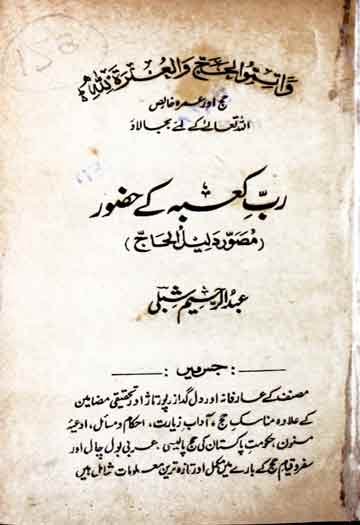 وَاَتِمُّوا الْحَجَّ وَالْعُمْرَةَ لِلّٰهِ
حج اور عمرہ خالص
اللہ تعالیٰ کے لئے بجا لاؤ
ربِّ کعبہ کے حضور
(مصوّر دلیل الحاج)
عبدالرحیم شبلی
جس میں :
مصنف کے عارفانہ اور دل گداز رپورتاژ اور تحقیقی مضامین
کے علاوہ مناسکِ حج، آدابِ زیارت، احکام و مسائل، ادعیۂ
مسنون، حکومتِ پاکستان کی حج پالیسی، عربی بول چال اور
سفر و قیامِ حج کے بارے میں مکمل اور تازہ ترین معلومات شامل ہیں